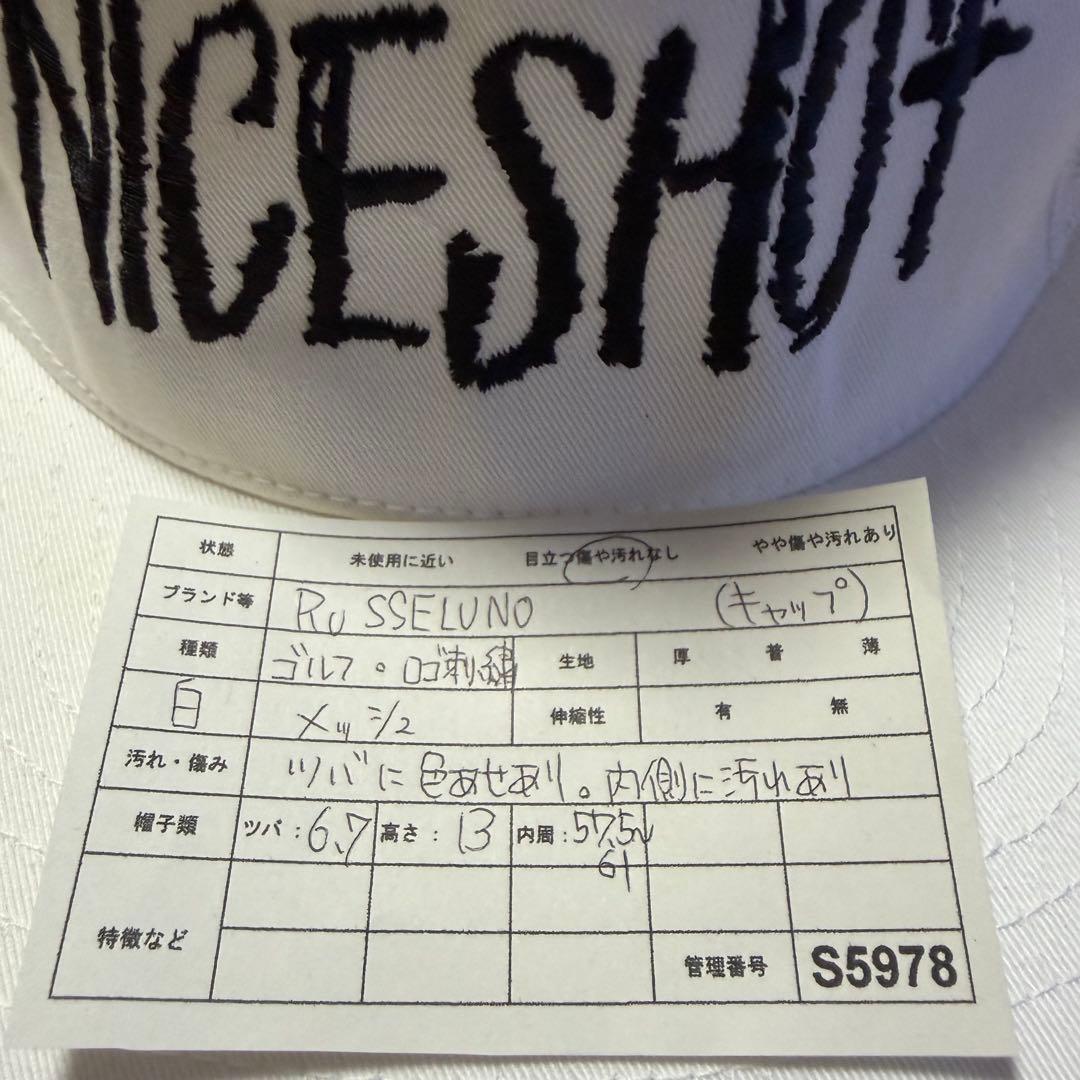 NICESHOT
状態 未使用に近い 目立つ傷や汚れなし やや傷や汚れあり
ブランド等 RUSSELUNO (キャップ)
種類 ゴルフ。ロゴ刺繍 生地 厚 普 薄
白 メッシュ 伸縮性 有 無
汚れ・傷み ツバに色あせあり。内側に汚れあり
帽子類 ツバ:6.7 高さ:13 内周:57.5~
61
特徴など
管理番号 S5978